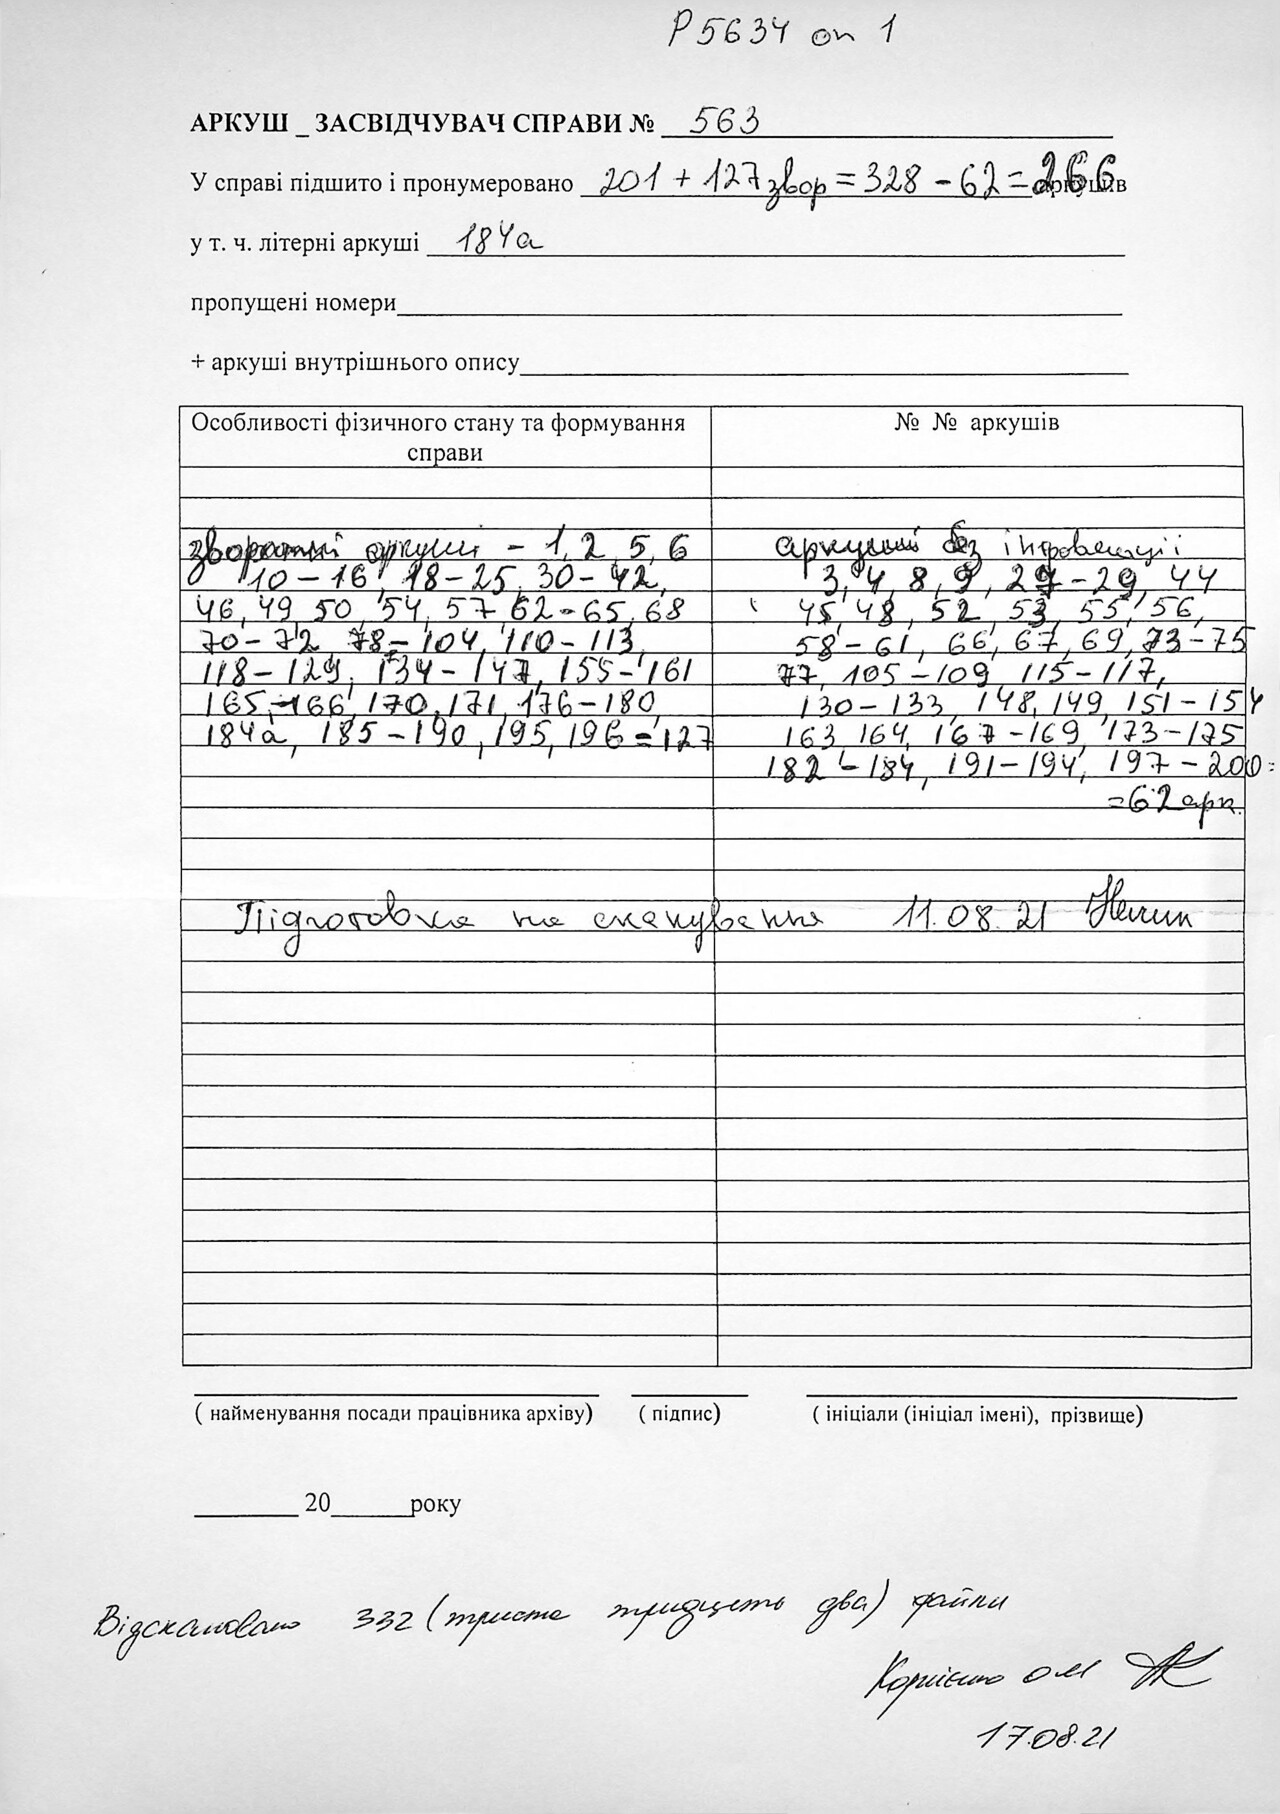 Р5634 оп 1
АРКУШ _ ЗАСВІДЧУВАЧ СПРАВИ № 563
У справі підшито і пронумеровано 201 + 127 звор = 328 – 62 = 266 аркушів
у т. ч. літерні аркуші 184а
пропущені номери
+ аркуші внутрішнього опису
Особливості фізичного стану та формування справи
№ № аркушів
зворотні аркуші – 1, 2, 5, 6
10 – 16, 18 – 25, 30 – 42,
46, 49, 50, 54, 57, 62 – 65, 68
70 – 72, 78 – 104, 110 – 113,
118 – 129, 134 – 147, 155 – 161
165 – 166, 170, 171, 176 – 180,
184а, 185 – 190, 195, 196 = 127
аркуші без інформації
3, 4, 8, 9, 27 – 29, 44
45, 48, 52, 53, 55, 56,
58 – 61, 66, 67, 69, 73 – 75
77, 105 – 109, 115 – 117,
130 – 133, 148, 149, 151 – 154
163, 164, 167 – 169, 173 – 175
182 – 184, 191 – 194, 197 – 200 =
= 62 арк.
Підготовка на сканування 11.08.21
( найменування посади працівника архіву) ( підпис) ( ініціали (ініціал імені), прізвище)
20 року
Відскановано 332 (триста тридцять два) файли
Корнієнко О М
17.08.21